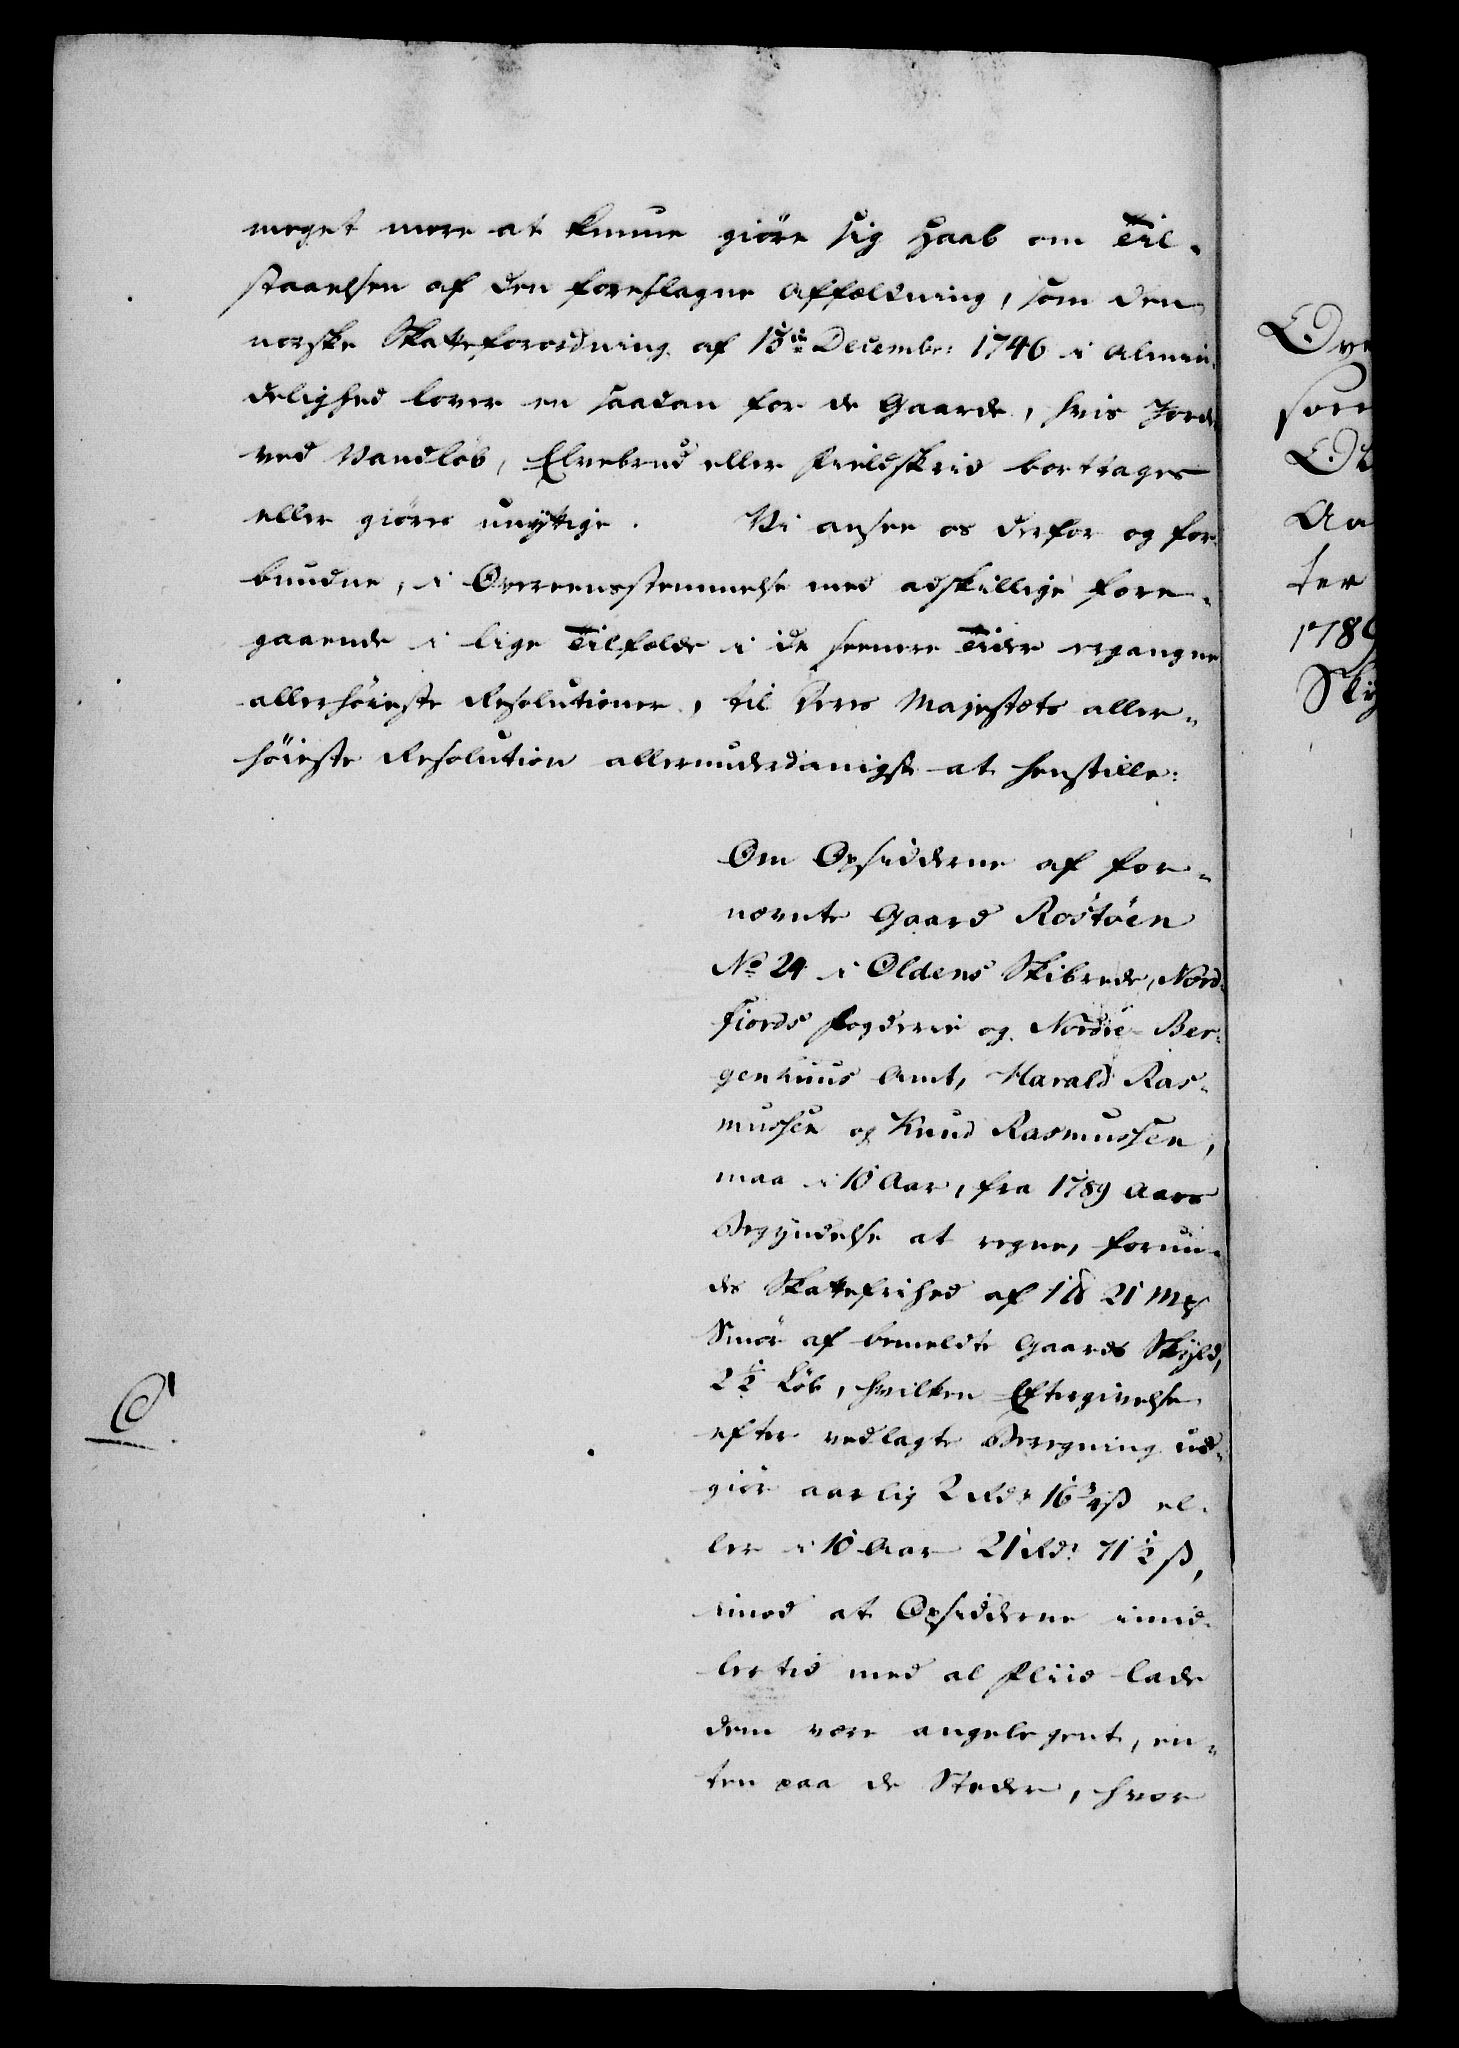 meget mere at kunne giöre sig Haab om Til-
staaelsen af den foreslagne Affældning, som den
norske Skatteforordning af 15de December 1746 i Almin-
delighed lover en saadan for de Gaarde, hvis Jorde
ved Vandløb, Elvebrud eller Fieldskrid borttages
eller giöres unyttige. Vi ansee os derfor og for-
bundne, i Overeensstemmelse med adskillige fore-
gaaende i lige Tilfælde i de seenere Tider ergangne
allerhöieste Resolutioner, til Deres Majestæts aller-
höieste Resolution allerunderdanigst at henstille:
Om Opsidderne af for-
nævnte Gaard Rostöen
No 24 i Oldens Skibrede, Nord-
fiords Fogderie og Nordre Ber-
genhuus Amt, Harald Ras-
mussen og Knud Rasmussen,
maa i 10 Aar, fra 1789 Aars
Begyndelse at regne, forun-
des Skattefrihed af 1 21 Mrk
Smör af bemeldte Gaards Skyld,
2½ Löb, hvilken Eftergivelse
efter vedlagte Beregning ud-
giör aarlig 2 Rdr 16¾ ß el-
ler i 10 Aar 21 Rdr 71½ ß,
imod at Opsidderne imid-
lertid med al Fliid lade
dem være angelegent, en-
ten paa de Steder, hvor
Ove
som
Aa
ter
1789
Sky